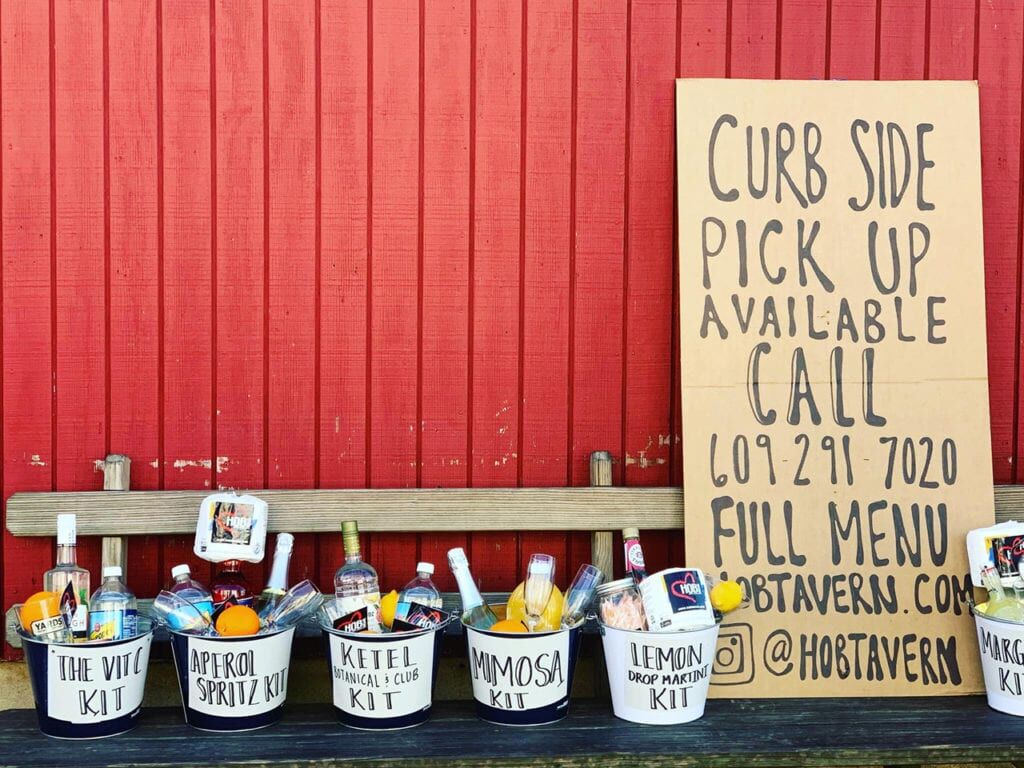 CURB SIDE
PICK UP
AVAILABLE
CALL
609-291-7020
FULL MENU
HOBTAVERN.COM
@HOBTAVERN
THE VIT C
KIT
YARDS
APEROL
SPRITZ KIT
HOB!
KETEL
BOTANICAL & CLUB
KIT
MIMOSA
KIT
LEMON
DROP MARTINI
KIT
MARG
KIT